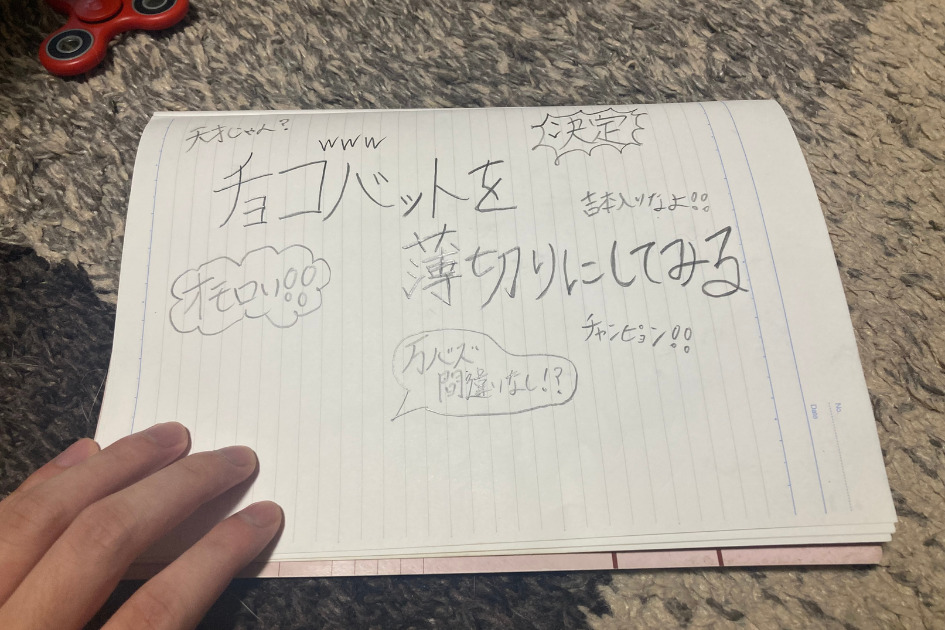 天才じゃん?
www
決定
チョコバットを
吉本入りなよ!!
薄切りにしてみる
オモロい!!
チャンピョン!!
万バズ
間違いなし!?
No.
Date